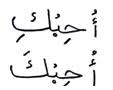 أُحِبُكِ
أُحِبُكَ